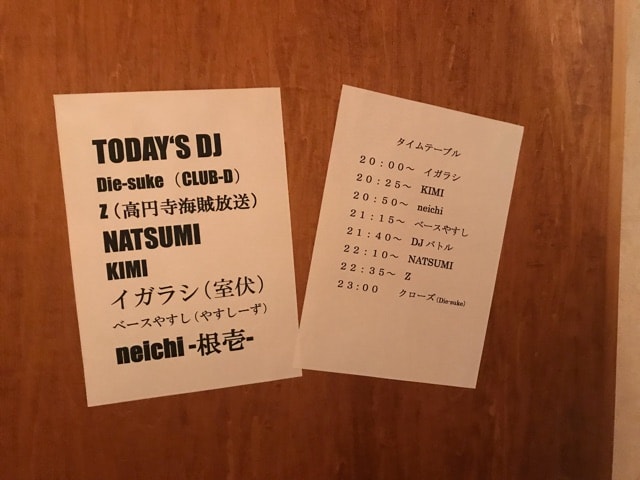 TODAY‘S DJ
Die-suke （CLUB-D）
Z（高円寺海賊放送）
NATSUMI
KIMI
イガラシ（室伏）
ベースやすし（やすしーず）
neichi -根壱-
タイムテーブル
２０：００～　イガラシ
２０：２５～　KIMI
２０：５０～　neichi
２１：１５～　ベースやすし
２１：４０～　DJ バトル
２２：１０～　NATSUMI
２２：３５～　Z
２３：００　　クローズ (Die-suke)